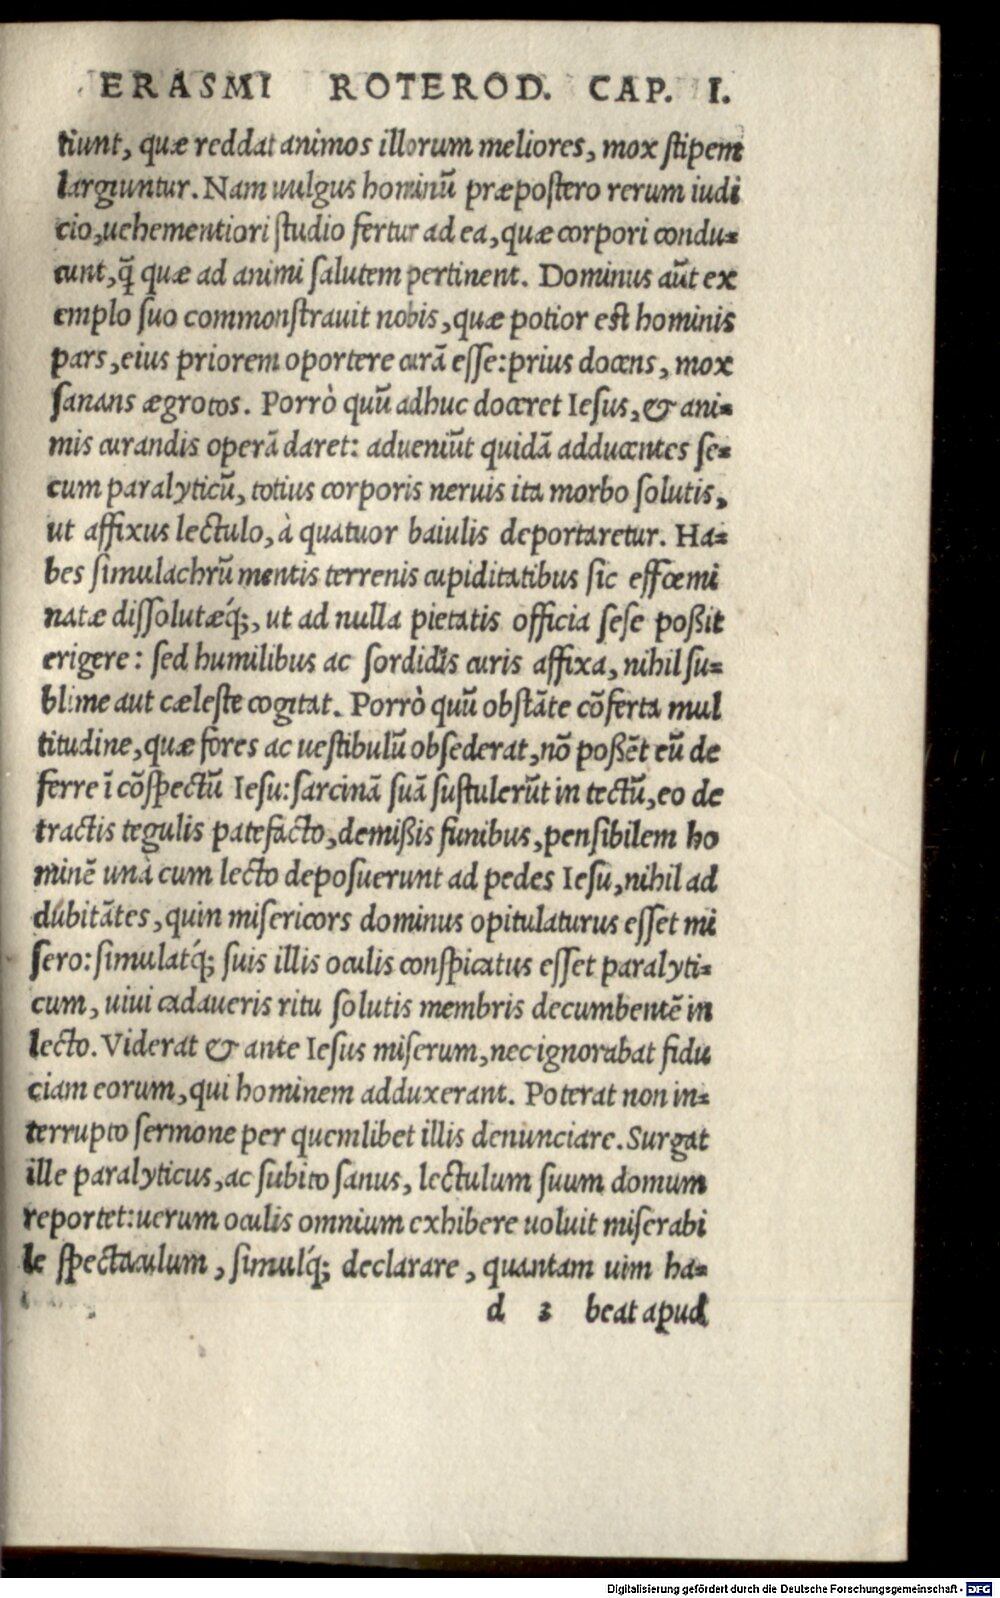 ERASMI ROTEROD. CAP. I.
tiunt, quæ reddat animos illorum meliores, mox ſtipem
largiuntur. Nam uulgus hominū præpoſtero rerum iudi
cio, uehementiori ſtudio fertur ad ea, quæ corpori condu-
cunt, q̃ quæ ad animi ſalutem pertinent. Dominus aūt ex
emplo ſuo commonſtrauit nobis, quæ potior eſt hominis
pars, eius priorem oportere curā eſſe: prius docens, mox
ſanans ægrotos. Porrò quū adhuc doceret Ieſus, & ani-
mis curandis operā daret: adueniūt quidā adducentes ſe-
cum paralyticū, totius corporis neruis ita morbo ſolutis,
ut affixus lectulo, à quatuor baiulis deportaretur. Ha-
bes ſimulachrū mentis terrenis cupiditatibus ſic effœmi
natæ diſſolutæq́;, ut ad nulla pietatis officia ſeſe poßit
erigere: ſed humilibus ac ſordidis curis affixa, nihil ſu-
blime aut cæleſte cogitat. Porrò quū obſtāte cōferta mul
titudine, quæ fores ac ueſtibulū obſederat, nō poßēt eū de
ferre ī cōſpectū Ieſu: ſarcinā ſuā ſuſtulerūt in tectū, eo de
tractis tegulis patefacto, demißis funibus, penſibilem ho
minē unà cum lecto depoſuerunt ad pedes Ieſu, nihil ad
dubitātes, quin miſericors dominus opitulaturus eſſet mi
ſero: ſimulatq́; ſuis illis oculis conſpicatus eſſet paralyti-
cum, uiui cadaueris ritu ſolutis membris decumbentē in
lecto. Viderat & ante Ieſus miſerum, nec ignorabat fidu
ciam eorum, qui hominem adduxerant. Poterat non in-
terrupto ſermone per quemlibet illis denunciare. Surgat
ille paralyticus, ac ſubito ſanus, lectulum ſuum domum
reportet: uerum oculis omnium exhibere uoluit miſerabi
le ſpectaculum, ſimulq́; declarare, quantam uim ha-
d 3 beat apud
Digitalisierung gefördert durch die Deutsche Forschungsgemeinschaft - DFG